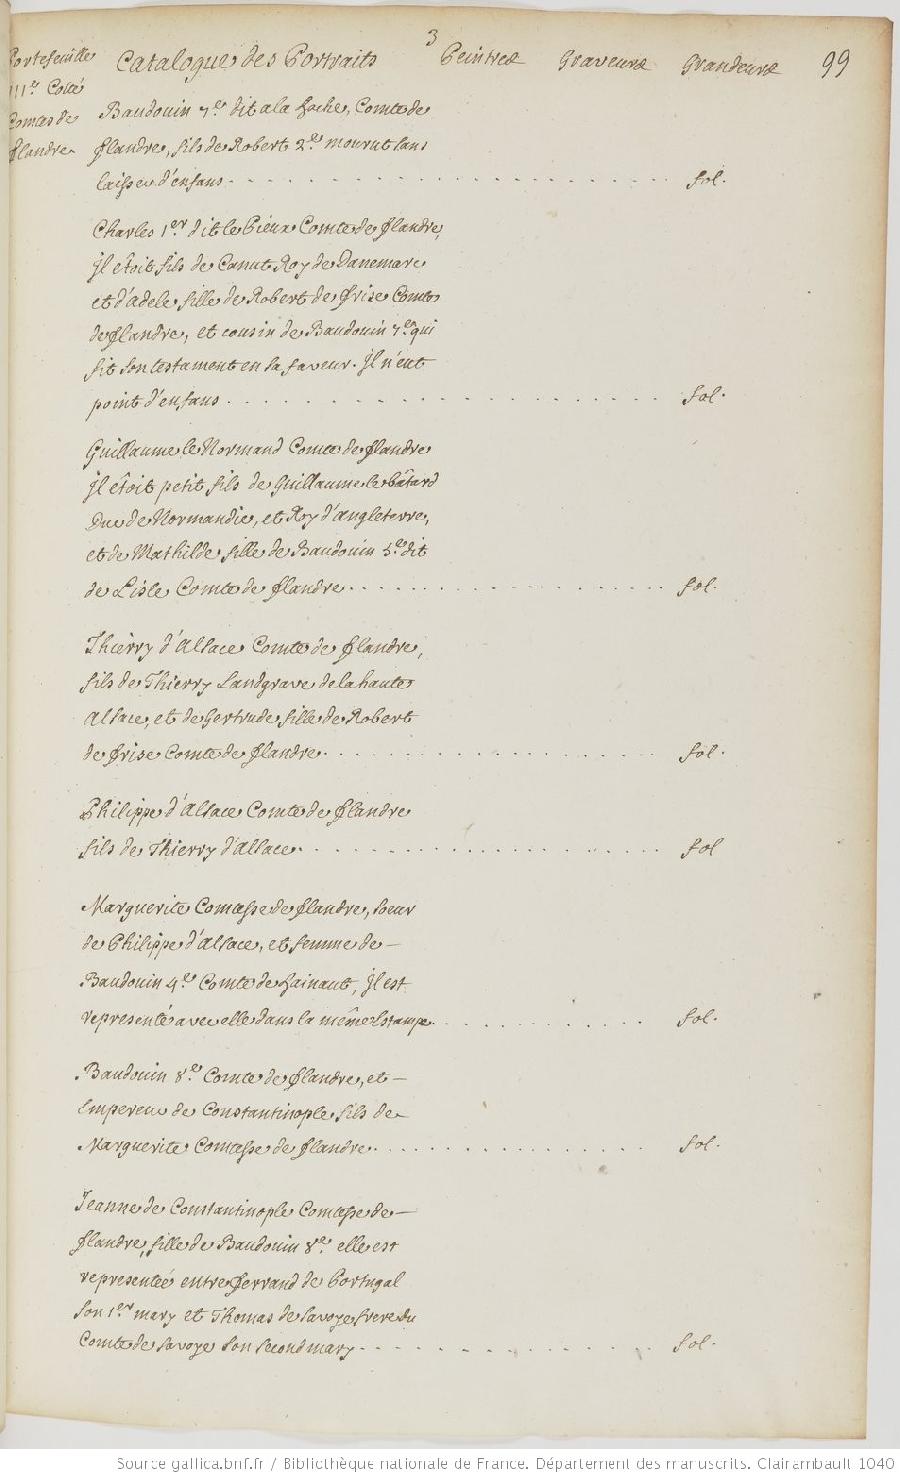 3
Portefeuille Catalogue des Portraits Peintres Graveurs Grandeurs 99
111e. Cotté
Comtes de
flandre
Baudouin 7.e dit a la hache, Comte de
flandre, fils de Robert 2.e mourut sans
laisser d'enfans. fol.
Charles 1.er dit le Pieux Comte de flandre,
Il étoit fils de Canut Roy de Danemarc
et d'adele fille de Robert de frise Comte
de flandre, et cousin de Baudouin 7.e qui
fit son testament en sa faveur. Il n'eut
point d'enfans. fol.
Guillaume le Normand Comte de flandre
Il étoit petit fils de Guillaume le bâtard
Duc de Normandie, et Roy d'angleterre,
et de Mathilde fille de Baudouin 5.e dit
de Lisle Comte de flandre. fol.
Thierry d'Alsace Comte de flandre,
fils de Thierry Landgrave de la haute
Alsace, et de Gertrude fille de Robert
de frise Comte de flandre. fol.
Philippe d'Alsace Comte de flandre
fils de Thierry d'Alsace. fol
Marguerite Comtesse de flandre, soeur
de Philippe d'Alsace, et femme de —
Baudouin 4.e Comte de hainaut, Il est
representé avec elle dans la même Estampe. fol.
Baudouin 8.e Comte de flandre, et —
Empereur de Constantinople fils de
Marguerite Comtesse de flandre. fol.
Jeanne de Constantinople Comtesse de —
flandre, fille de Baudouin 8.e elle est
representée entre ferrand de Portugal
son 1.er mary et Thomas de Savoye frere du
Comte de Savoye son second mary. fol.
Source gallica.bnf.fr / Bibliothèque nationale de France. Département des manuscrits. Clairambault 1040